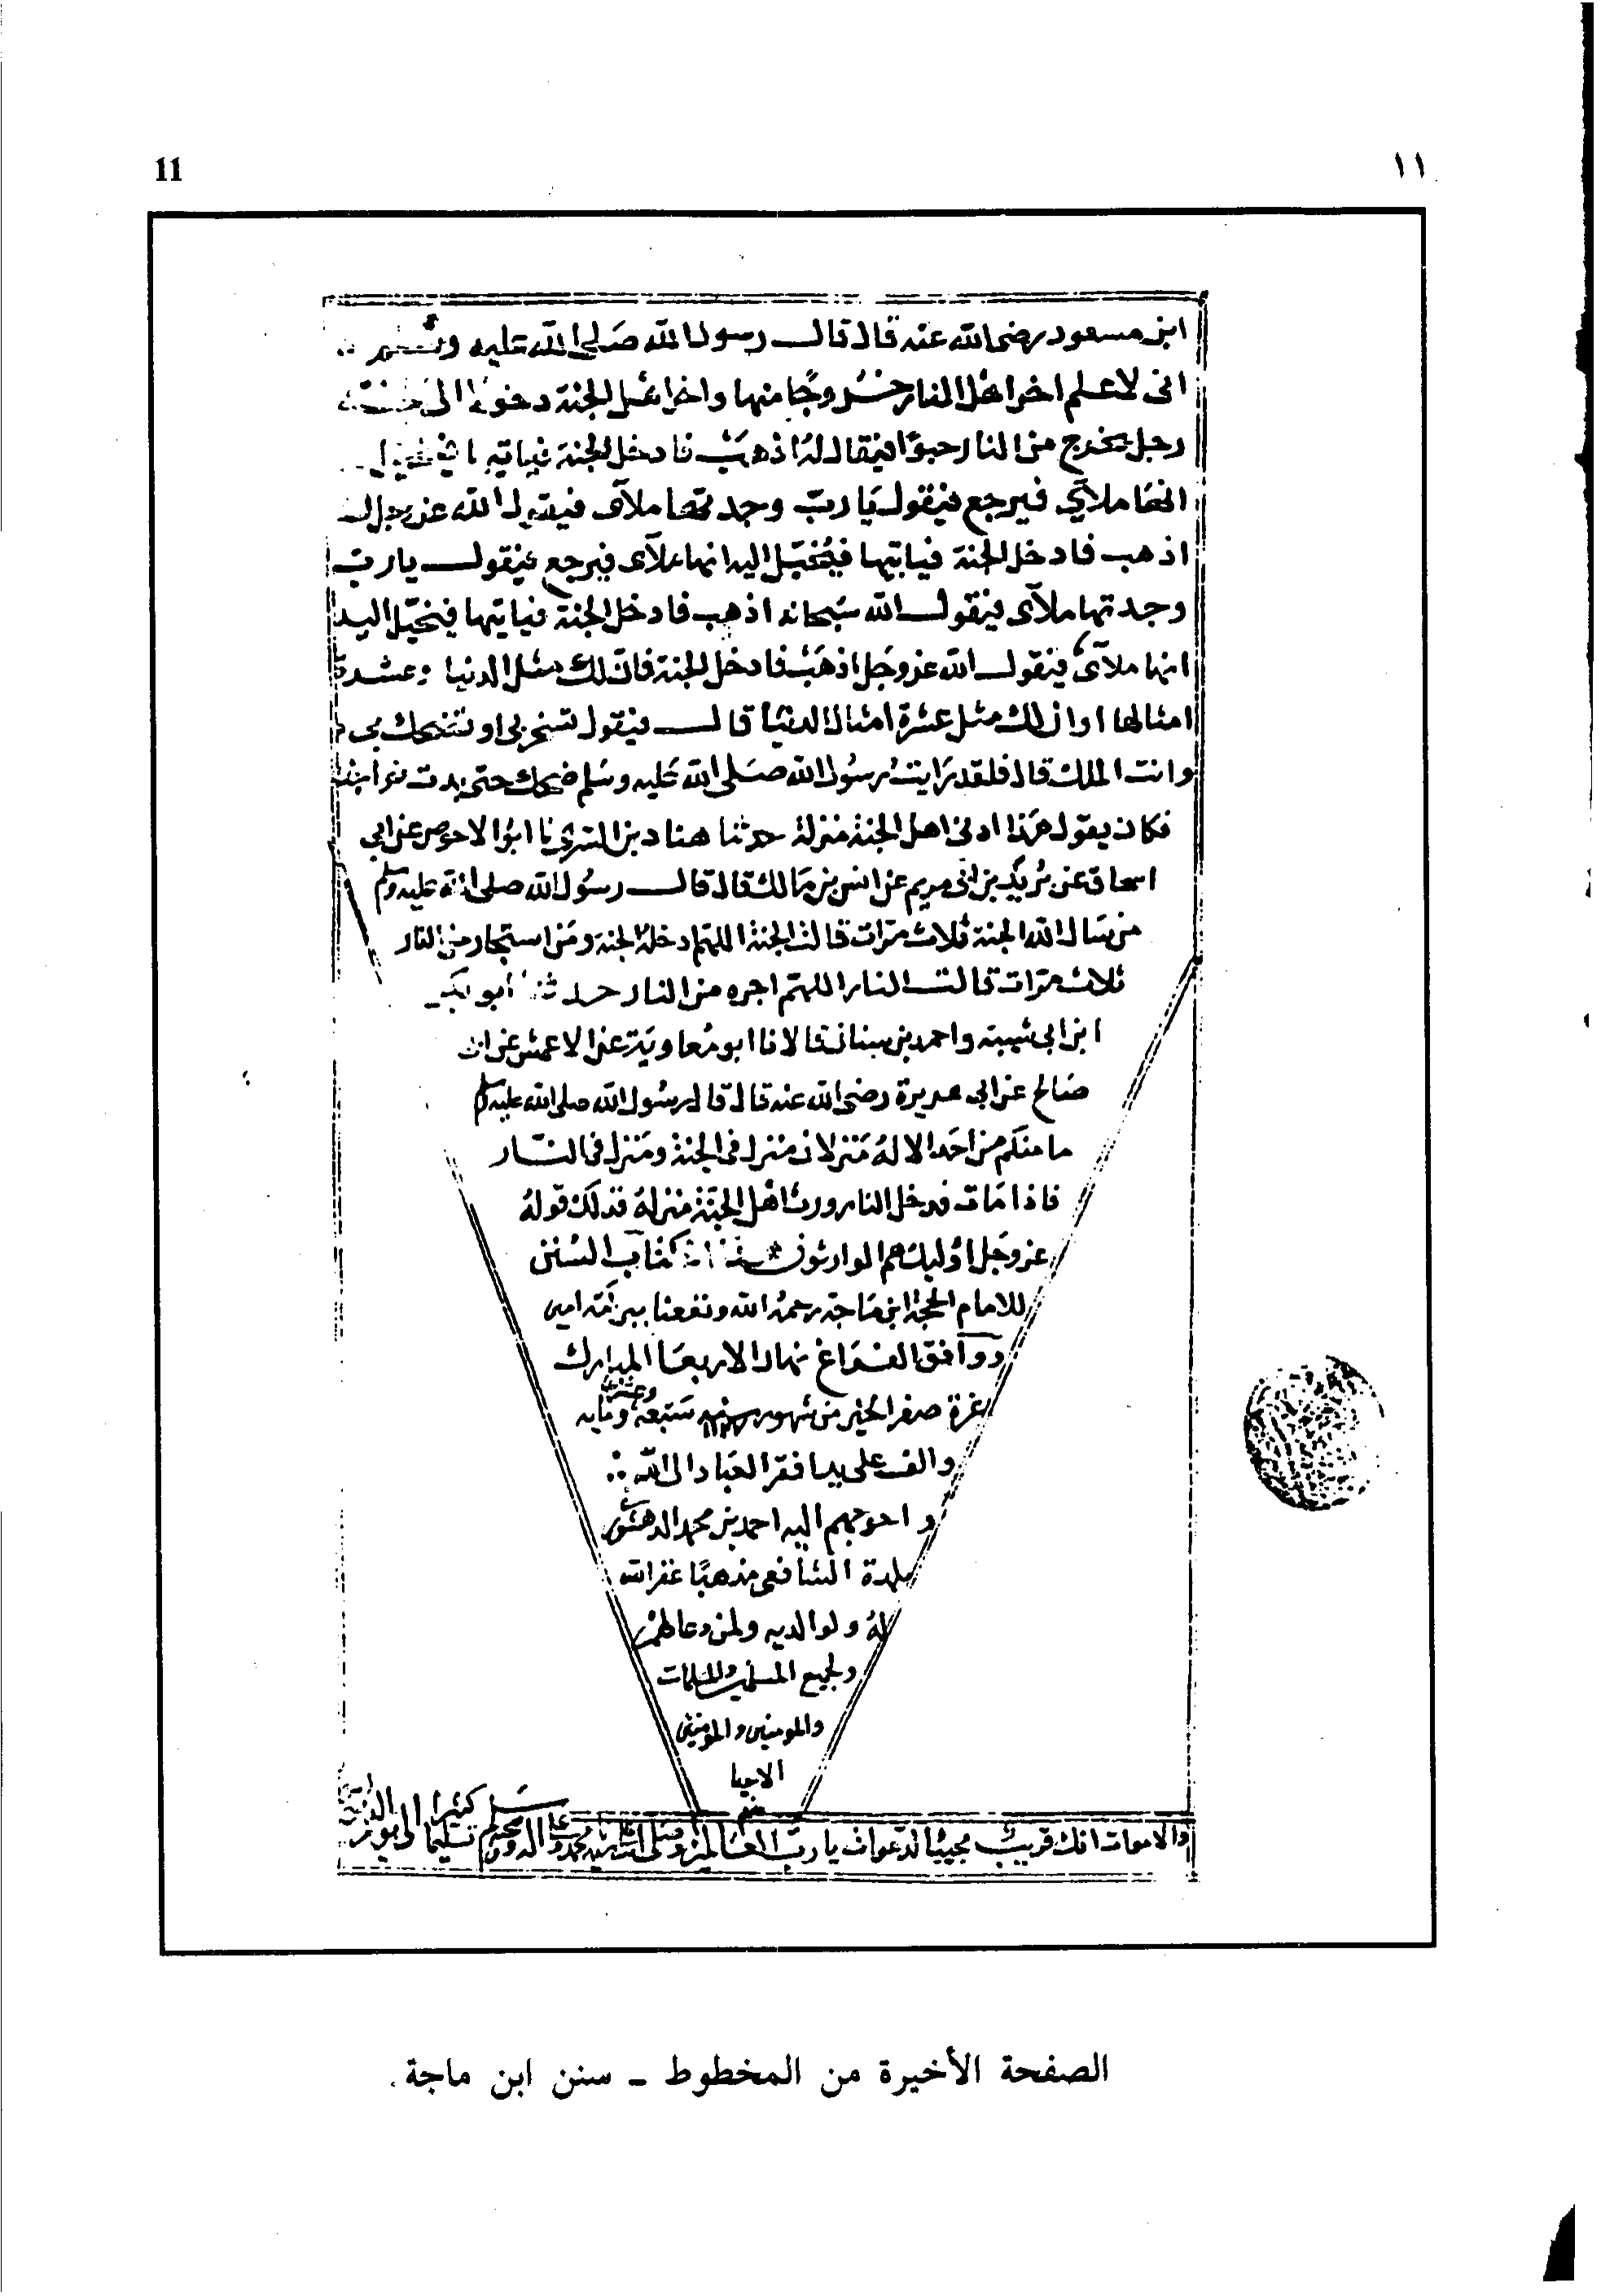 11
١١
ابن مسعود رضى الله عنه قال قال رسول الله صَلى الله عليه وسلم
انى لاعلم اخر اهْل النار خُرُوجًا منها واخر اهْل الجنة دخولا الى الجنة
رجل يخرج من النار حبوًا فيقال لهُ اذهَبْ فادخل الجنة فياتيها فيخيل
انها ملآى فيرجع فيقول يَا ربّ وجدتها ملآى فيقول الله عز وجل
اذهب فادخل الجنة فياتيها فيُخيّل اليه انها ملآى فيرجع فيقول يا رب
وجدتها ملآى فيقول الله سُبحانه اذهب فادخل الجنة فياتيها فيخيّل اليه
انها ملآى فيقول الله عز وجَل اذهَبْ فادخل الجنة فان لك مثل الدنيا وعشرة
امثالها او ان لك مثل عشرة امثال الدنيَا قال فيقول تسخر بى او تضحك بى
وانت الملك قال فلقد رَايتُ رسُول الله صَلى الله عَليه وسَلم ضحك حتى بدت نواجذه
فكان يقول هَذا ادنى اهل الجنة منزلة حدثنا هناد بن السَّرِي نا ابوُ الاحوص عن ابي
اسحاق عن بُرَيد بن ابى مريم عن انس بن مَالك قال قال رسُول الله صلى الله عليه وسلم
من سَال الله الجنة ثلاث مرّات قالت الجنة اللهم ادخله الجنة ومَن استجار من النار
ثلاث مرّات قالت النار اللهمّ اجره من النار حدثنا أبو بكر
ابن ابى شيبة واحمد بن سنان قالا نا ابو مُعاويَة عن الاعمش عن ابى
صَالح عن ابى هريرة رضى الله عنه قال قال رسُول الله صلى الله عليه وسلم
ما منكم من احَد الا لهُ مَنزلان منزل فى الجنة ومَنزل فى النّار
فاذا مَات فدخل النار ورث اهْل الجنَّة منزلهُ فذلك قولهُ
عز وجَل اوُليك هم الوارثون * كتاب السُنن
للامام الحجة ابن مَاجة رحمهُ الله ونفعنا ببركته امين
ووافق الفَراغ نهار الاربعَا المبارك
غرة صفر الخير من شهور سنة سَبعة وعشرين وماية
والف على يد افقر العبَاد الى الله
واحوجهم اليه احمد بن محمد الدهشورى
بلدة الشافعى مذهبًا غفر الله
لهُ ولوالديه ولمن دعا لهمْ
ولجميع المسلمين والمسلمات
والمومنين والمومنات
الاحيا
منهم
والاموات انك قريبٌ مجيبُ الدعوات يا ربّ العَالمين وصَلى الله على سيدنا محمد وعلى اله وصحبه وسلم تسليما كثيرا الى يوم الدين
الصفحة الأخيرة من المخطوط ــ سنن ابن ماجة.